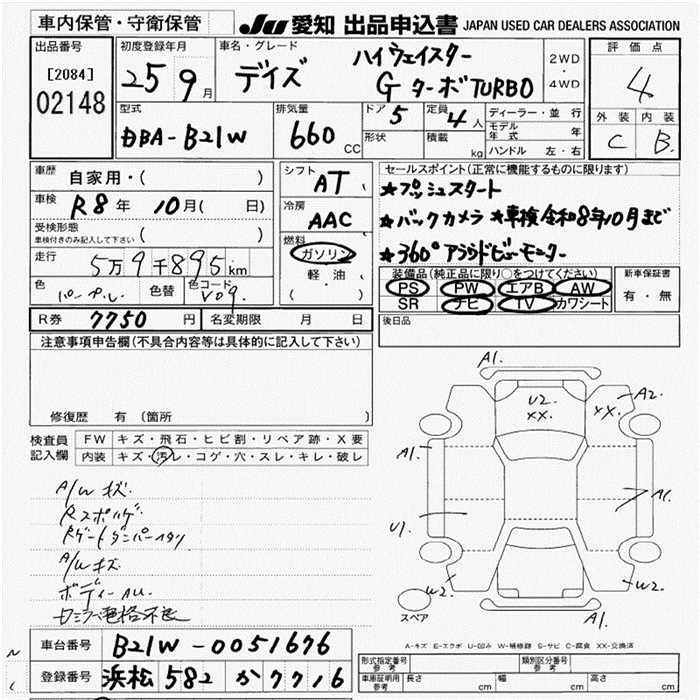 車内保管・守衛保管
JU 愛知 出品申込書 JAPAN USED CAR DEALERS ASSOCIATION
出品番号
[2084]
02148
初度登録年月
25 9月
車名・グレード
デイズ
ハイウェイスター
G ターボTURBO
2WD
・
4WD
評価点
4
外装 内装
C B.
型式
DBA-B21W
排気量
660 CC
ドア 5
形状
定員 4 人
積載 kg
ディーラー・並行
モデル年式 年
ハンドル 左・右
車歴
自家用・( )
車検
R8年 10月( 日)
受検形態
車検付きのみ記入して下さい ( )
走行
5万9千895km
色
パープル
色替
色コード
V09.
シフト
AT
冷房
AAC
燃料
ガソリン
軽油
( )
セールスポイント(正常に機能するものに限ります)
★プッシュスタート
★バックカメラ ★車検令和8年10月まで
★360°アラウンドビューモニター
装備品(純正品に限り○をつけてください)
PS PW エアB AW
SR ナビ TV カワシート
新車保証書
有・無
R券 7750 円
名変期限 月 日
後日品
注意事項申告欄(不具合内容等は具体的に記入して下さい)
修復歴 有 (箇所
検査員
記入欄
FW キズ・飛石・ヒビ割・リペア跡・X要
内装 キズ・汚レ・コゲ・穴・スレ・キレ・破レ
A/W キズ
Rスポハゲ
A/Wキズ
A1.
U2.
XX.
XX.
A2.
A1.
A1.
U1.
W2.
W2.
A1.
スペア
A-キズ E-エクボ U-凹み W-補修跡 S-サビ C-腐食 XX-交換済
車台番号
B21W-0051676
登録番号
浜松 582 か 7716
形式指定番号
参考
類別区分番号
参考
車庫証明用
参考
長さ cm
幅 cm
高さ cm